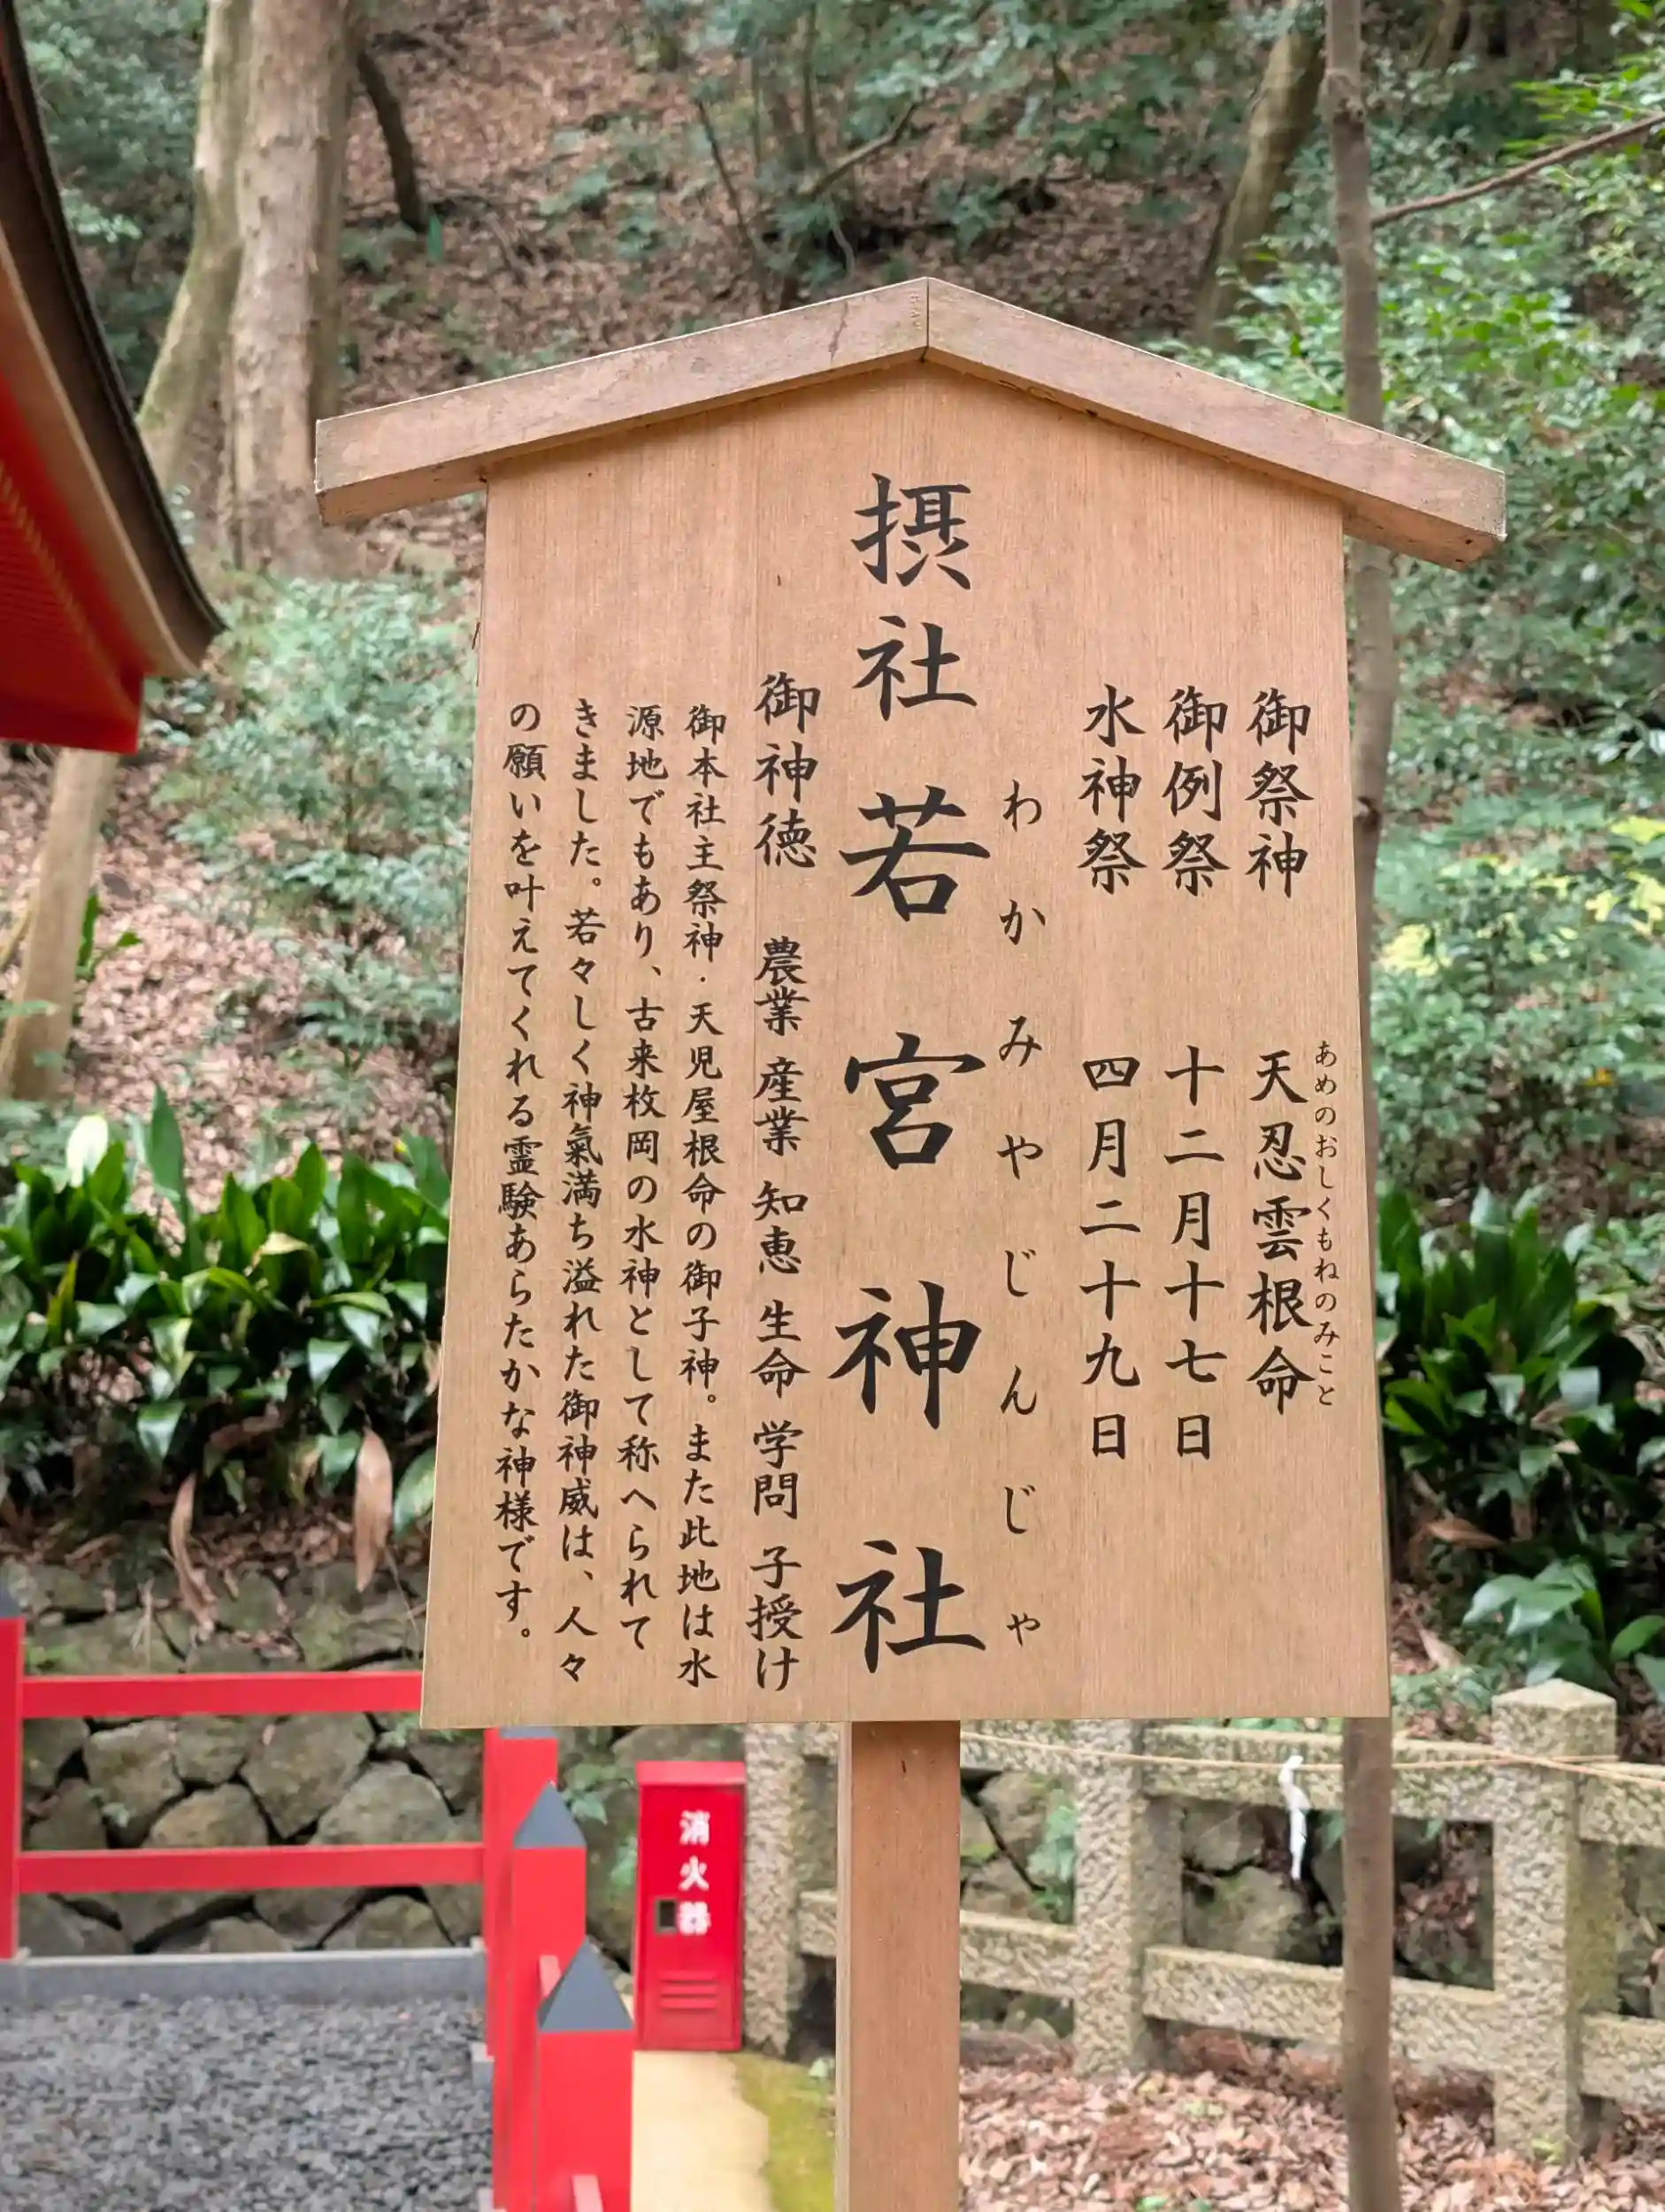 御祭神 天忍雲根命
あめのおしくもねのみこと
御例祭 十二月十七日
水神祭 四月二十九日
わかみやじんじゃ
摂社 若宮神社
御神徳 農業 産業 知恵 生命 学問 子授け
御本社主祭神・天児屋根命の御子神。また此地は水
源地でもあり、古来枚岡の水神として称へられて
きました。若々しく神氣満ち溢れた御神威は、人々
の願いを叶えてくれる霊験あらたかな神様です。
消火器